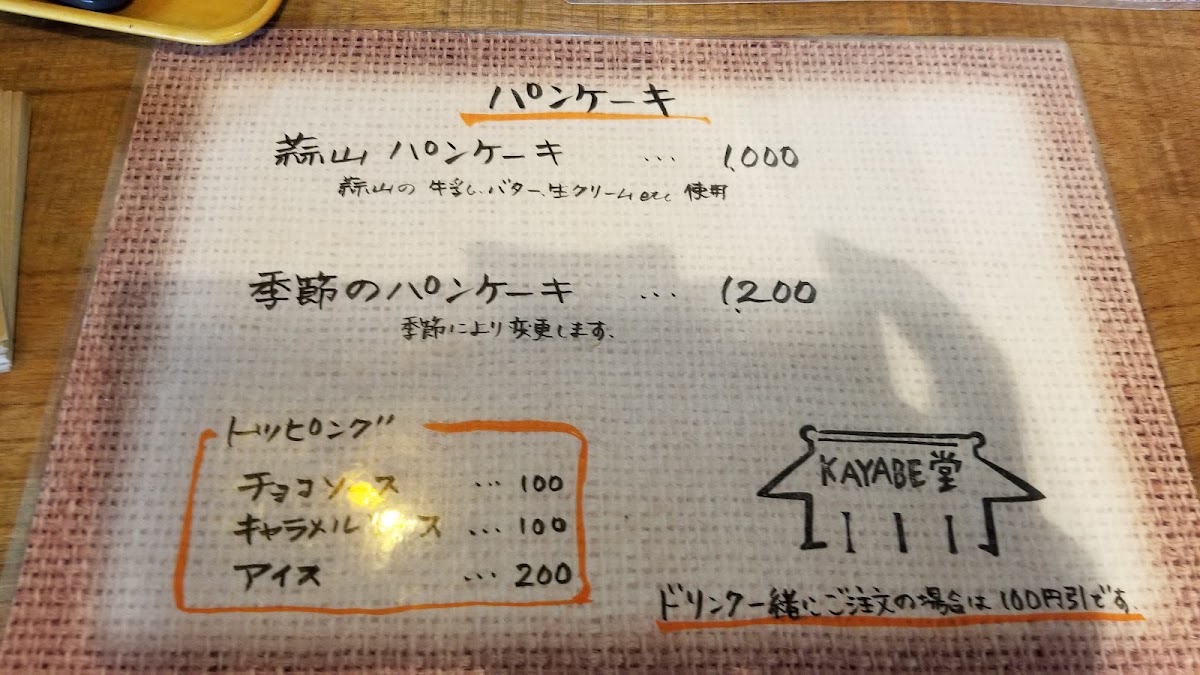 パンケーキ
蒜山パンケーキ … 1,000
蒜山の牛乳、バター、生クリームetc 使用
季節のパンケーキ … 1,200
季節により変更します。
トッピング
チョコソース … 100
キャラメルソース … 100
アイス … 200
KAYABE堂
ドリンク一緒にご注文の場合は100円引です。